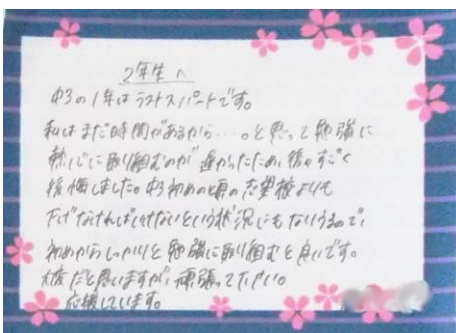 2年生へ
中3の1年はラストスパートです。
私はまだ時間があるから…。と思って勉強に
熱心に取り組むのが遅かったため、後々すごく
後悔しました。中3初めの頃の志望校よりも
下げなければいけないという状況にもなりうるので、
初めからしっかりと勉強に取り組むと良いです。
大変だと思いますが、頑張って下さい。
応援しています。